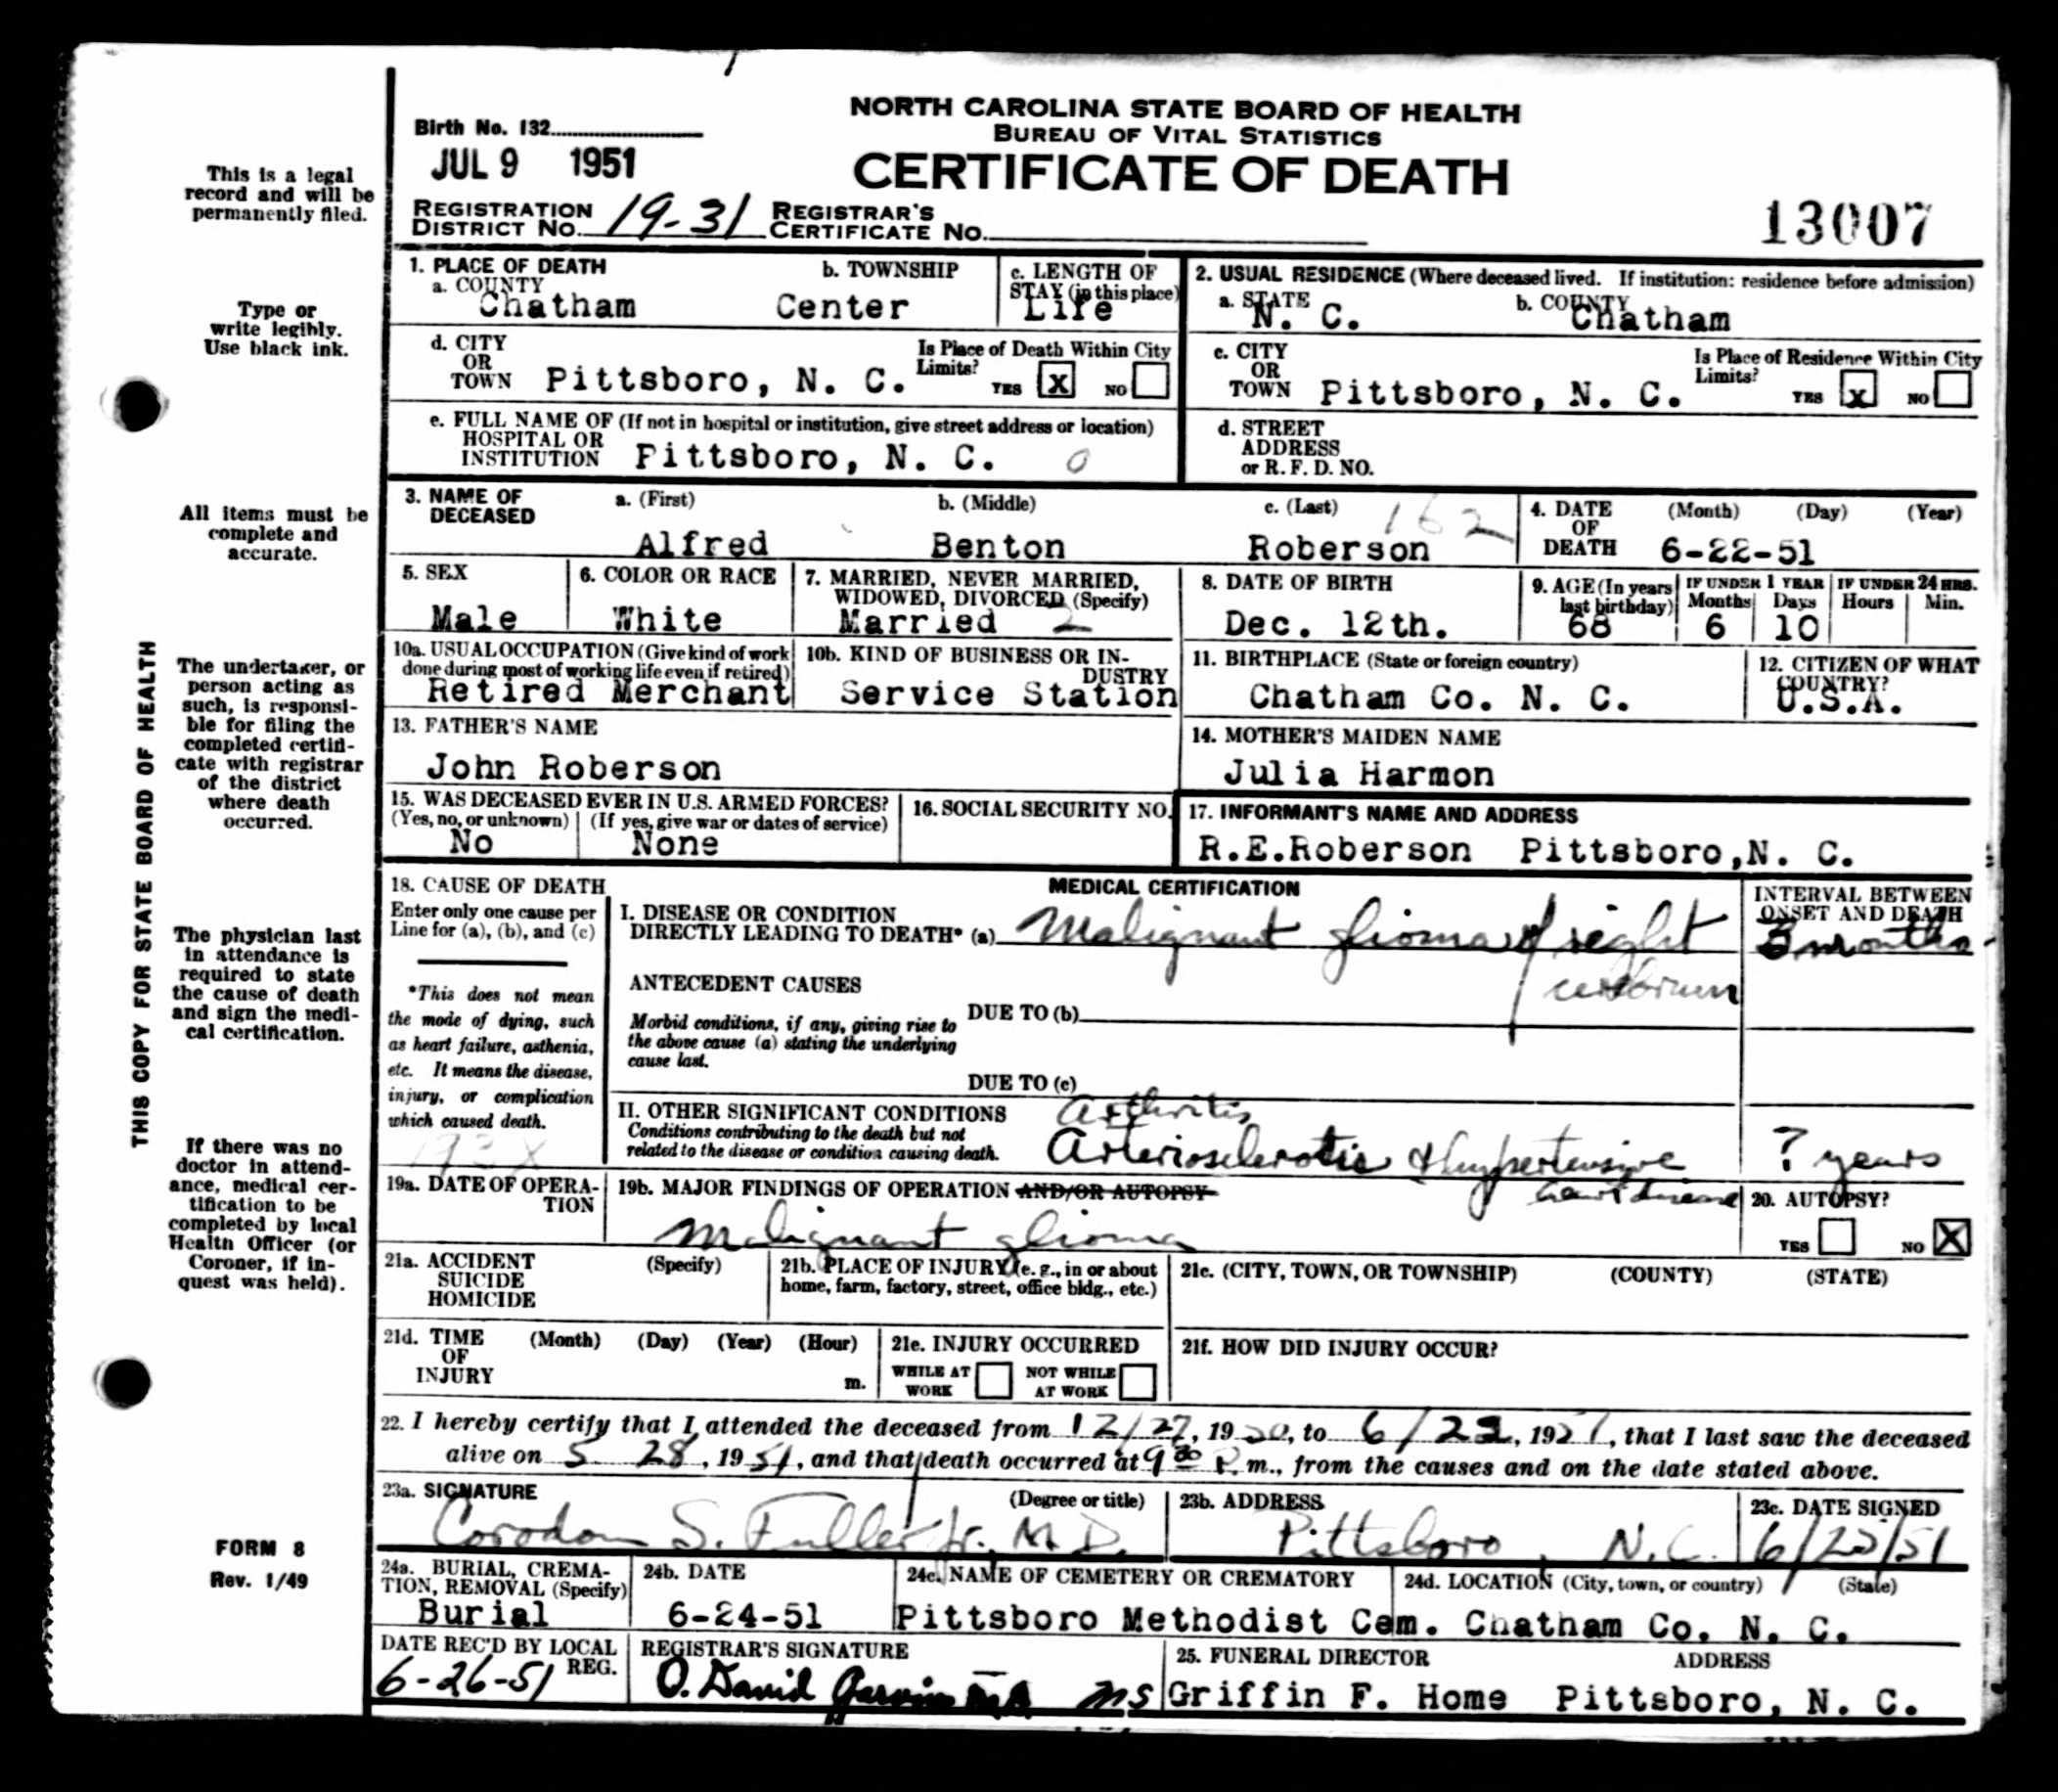 NORTH CAROLINA STATE BOARD OF HEALTH
BUREAU OF VITAL STATISTICS
CERTIFICATE OF DEATH
Birth No. 132
JUL 9 1951
REGISTRATION DISTRICT No. 19-31 REGISTRAR'S CERTIFICATE No.
13007
THIS COPY FOR STATE BOARD OF HEALTH
This is a legal
record and will be
permanently filed.
Type or
write legibly.
Use black ink.
All items must be
complete and
accurate.
The undertaker, or
person acting as
such, is responsi-
ble for filing the
completed certifi-
cate with registrar
of the district
where death
occurred.
The physician last
in attendance is
required to state
the cause of death
and sign the medi-
cal certification.
If there was no
doctor in attend-
ance, medical cer-
tification to be
completed by local
Health Officer (or
Coroner, if in-
quest was held).
FORM 8
Rev. 1/49
1. PLACE OF DEATH
a. COUNTY
Chatham
b. TOWNSHIP
Center
c. LENGTH OF
STAY (in this place)
Life
2. USUAL RESIDENCE (Where deceased lived. If institution: residence before admission)
a. STATE
N. C.
b. COUNTY
Chatham
d. CITY
OR
TOWN Pittsboro, N. C.
Is Place of Death Within City
Limits? YES x NO
c. CITY
OR
TOWN Pittsboro, N. C.
Is Place of Residence Within City
Limits? YES x NO
e. FULL NAME OF (If not in hospital or institution, give street address or location)
HOSPITAL OR
INSTITUTION Pittsboro, N. C. 0
d. STREET
ADDRESS
or R. F. D. NO.
3. NAME OF
DECEASED
a. (First) b. (Middle) c. (Last) 162
Alfred Benton Roberson
4. DATE
OF
DEATH
(Month) (Day) (Year)
6-22-51
5. SEX
Male
6. COLOR OR RACE
White
7. MARRIED, NEVER MARRIED,
WIDOWED, DIVORCED (Specify)
Married 2
8. DATE OF BIRTH
Dec. 12th.
9. AGE (In years
last birthday)
68
IF UNDER 1 YEAR
Months Days
6 10
IF UNDER 24 HRS.
Hours Min.
10a. USUAL OCCUPATION (Give kind of work
done during most of working life even if retired)
Retired Merchant
10b. KIND OF BUSINESS OR IN-
DUSTRY
Service Station
11. BIRTHPLACE (State or foreign country)
Chatham Co. N. C.
12. CITIZEN OF WHAT
COUNTRY?
U.S.A.
13. FATHER'S NAME
John Roberson
14. MOTHER'S MAIDEN NAME
Julia Harmon
15. WAS DECEASED EVER IN U.S. ARMED FORCES?
(Yes, no, or unknown) (If yes, give war or dates of service)
No None
16. SOCIAL SECURITY NO.
17. INFORMANT'S NAME AND ADDRESS
R.E.Roberson Pittsboro,N. C.
18. CAUSE OF DEATH
Enter only one cause per
Line for (a), (b), and (c)
*This does not mean
the mode of dying, such
as heart failure, asthenia,
etc. It means the disease,
injury, or complication
which caused death.
193X
MEDICAL CERTIFICATION
I. DISEASE OR CONDITION
DIRECTLY LEADING TO DEATH* (a) Malignant glioma of right
cerebrum
INTERVAL BETWEEN
ONSET AND DEATH
3 months
ANTECEDENT CAUSES
Morbid conditions, if any, giving rise to
the above cause (a) stating the underlying
cause last.
DUE TO (b)
DUE TO (c)
II. OTHER SIGNIFICANT CONDITIONS
Conditions contributing to the death but not
related to the disease or condition causing death.
Arthritis
Arteriosclerotic & Hypertensive
heart disease
? years
19a. DATE OF OPERA-
TION
19b. MAJOR FINDINGS OF OPERATION AND/OR AUTOPSY
Malignant glioma
20. AUTOPSY?
YES NO X
21a. ACCIDENT
SUICIDE
HOMICIDE
(Specify)
21b. PLACE OF INJURY (e. g., in or about
home, farm, factory, street, office bldg., etc.)
21c. (CITY, TOWN, OR TOWNSHIP) (COUNTY) (STATE)
21d. TIME
OF
INJURY
(Month) (Day) (Year) (Hour)
m.
21e. INJURY OCCURRED
WHILE AT
WORK
NOT WHILE
AT WORK
21f. HOW DID INJURY OCCUR?
22. I hereby certify that I attended the deceased from 12/27, 1950, to 6/22, 1951, that I last saw the deceased
alive on 5 28, 1951, and that death occurred at 9 30 P. m., from the causes and on the date stated above.
23a. SIGNATURE (Degree or title)
Corodon S. Fuller Jr., M.D.
23b. ADDRESS
Pittsboro, N.C.
23c. DATE SIGNED
6/25/51
24a. BURIAL, CREMA-
TION, REMOVAL (Specify)
Burial
24b. DATE
6-24-51
24c. NAME OF CEMETERY OR CREMATORY
Pittsboro Methodist Cem.
24d. LOCATION (City, town, or country) (State)
Chatham Co. N. C.
DATE REC'D BY LOCAL
REG.
6-26-51
REGISTRAR'S SIGNATURE
O. David Garvin MS
25. FUNERAL DIRECTOR ADDRESS
Griffin F. Home Pittsboro, N. C.